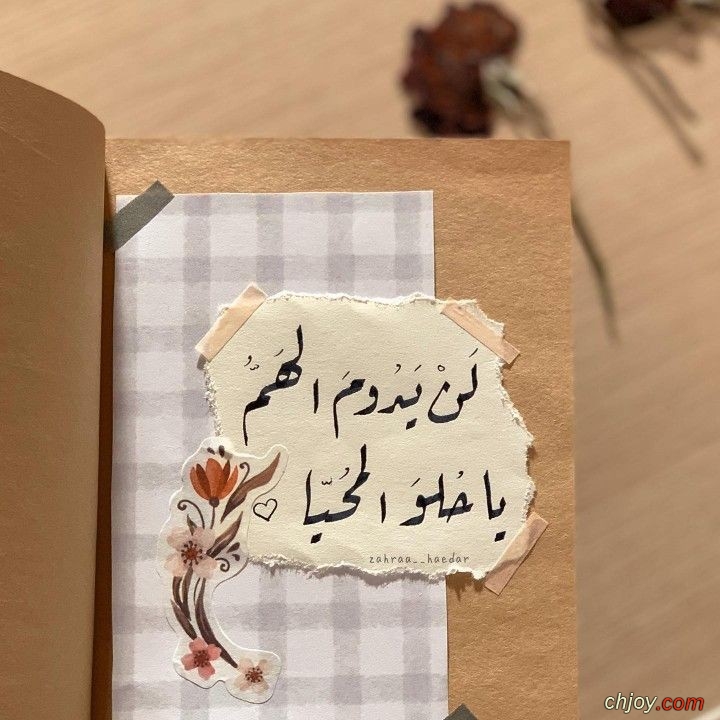 لَنْ يَدُومَ الهَمُّ
يا حُلوَ المُحَيّا
zahraa__haedar
chjoy.com